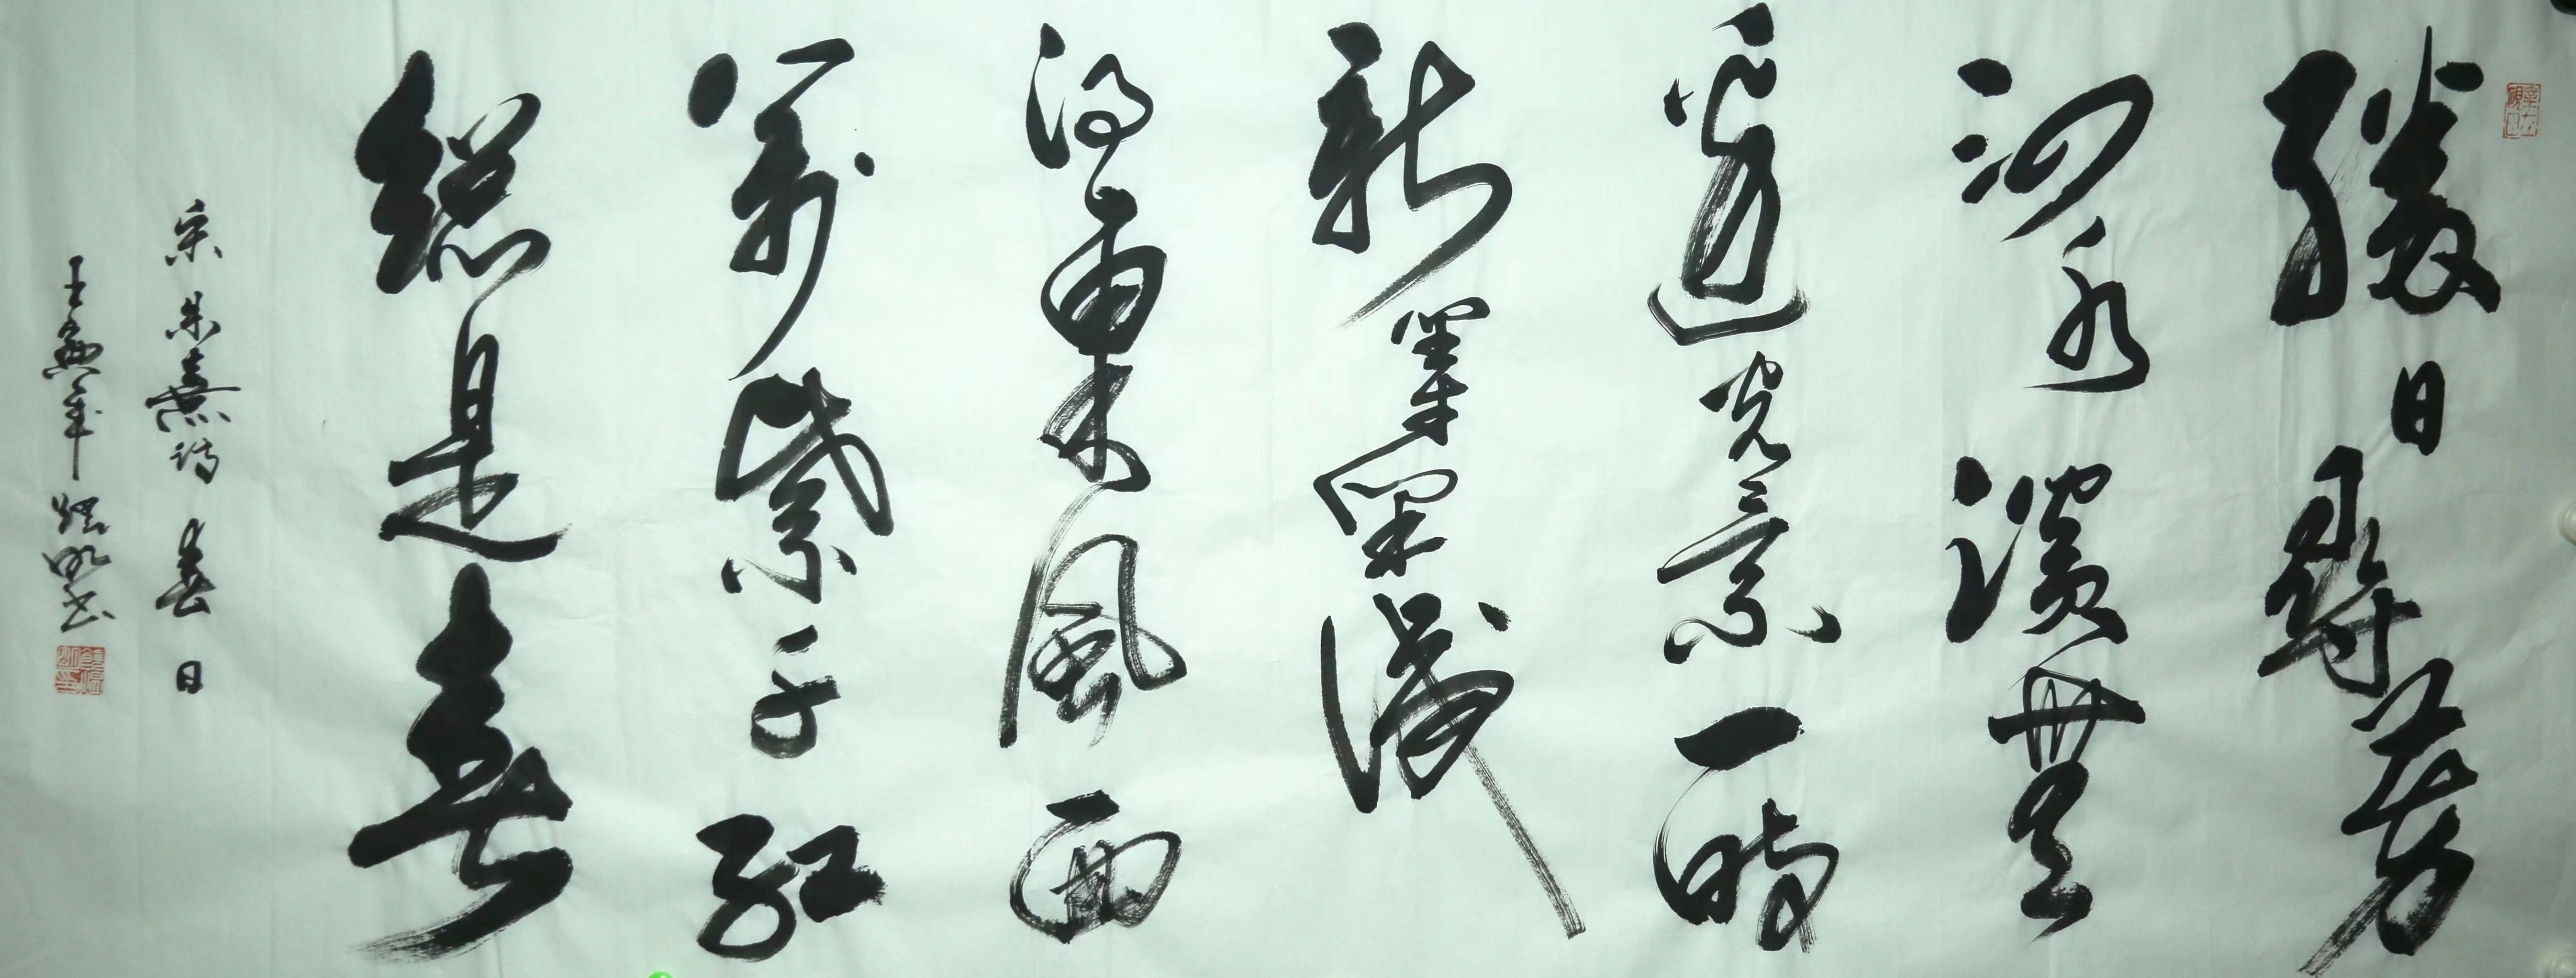 勝日尋芳
泗水濱無
邊光景一時
新等閒識
得東風面
萬紫千紅
總是春
宋朱熹詩春日
壬寅年明書